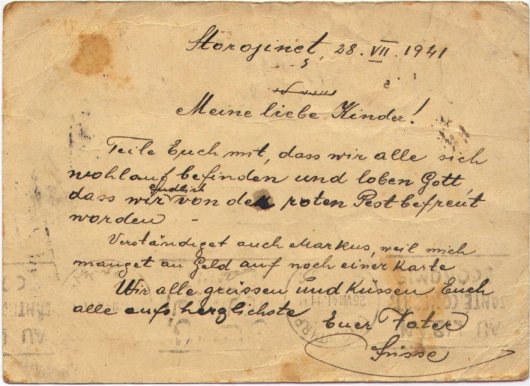 Storojineţ, 28. VII. 1941
Meine liebe Kinder!
Teile Euch mit, dass wir alle sich
wohlauf befinden und loben Gott
dass wir endlich von der roten Pest befreut
worden
Verständiget auch Markus, weil mich
manget an Geld auf noch einer Karte
Wir alle grüssen und Küssen Euch
alle aufs herzlichste
Euer Vater
Süsse